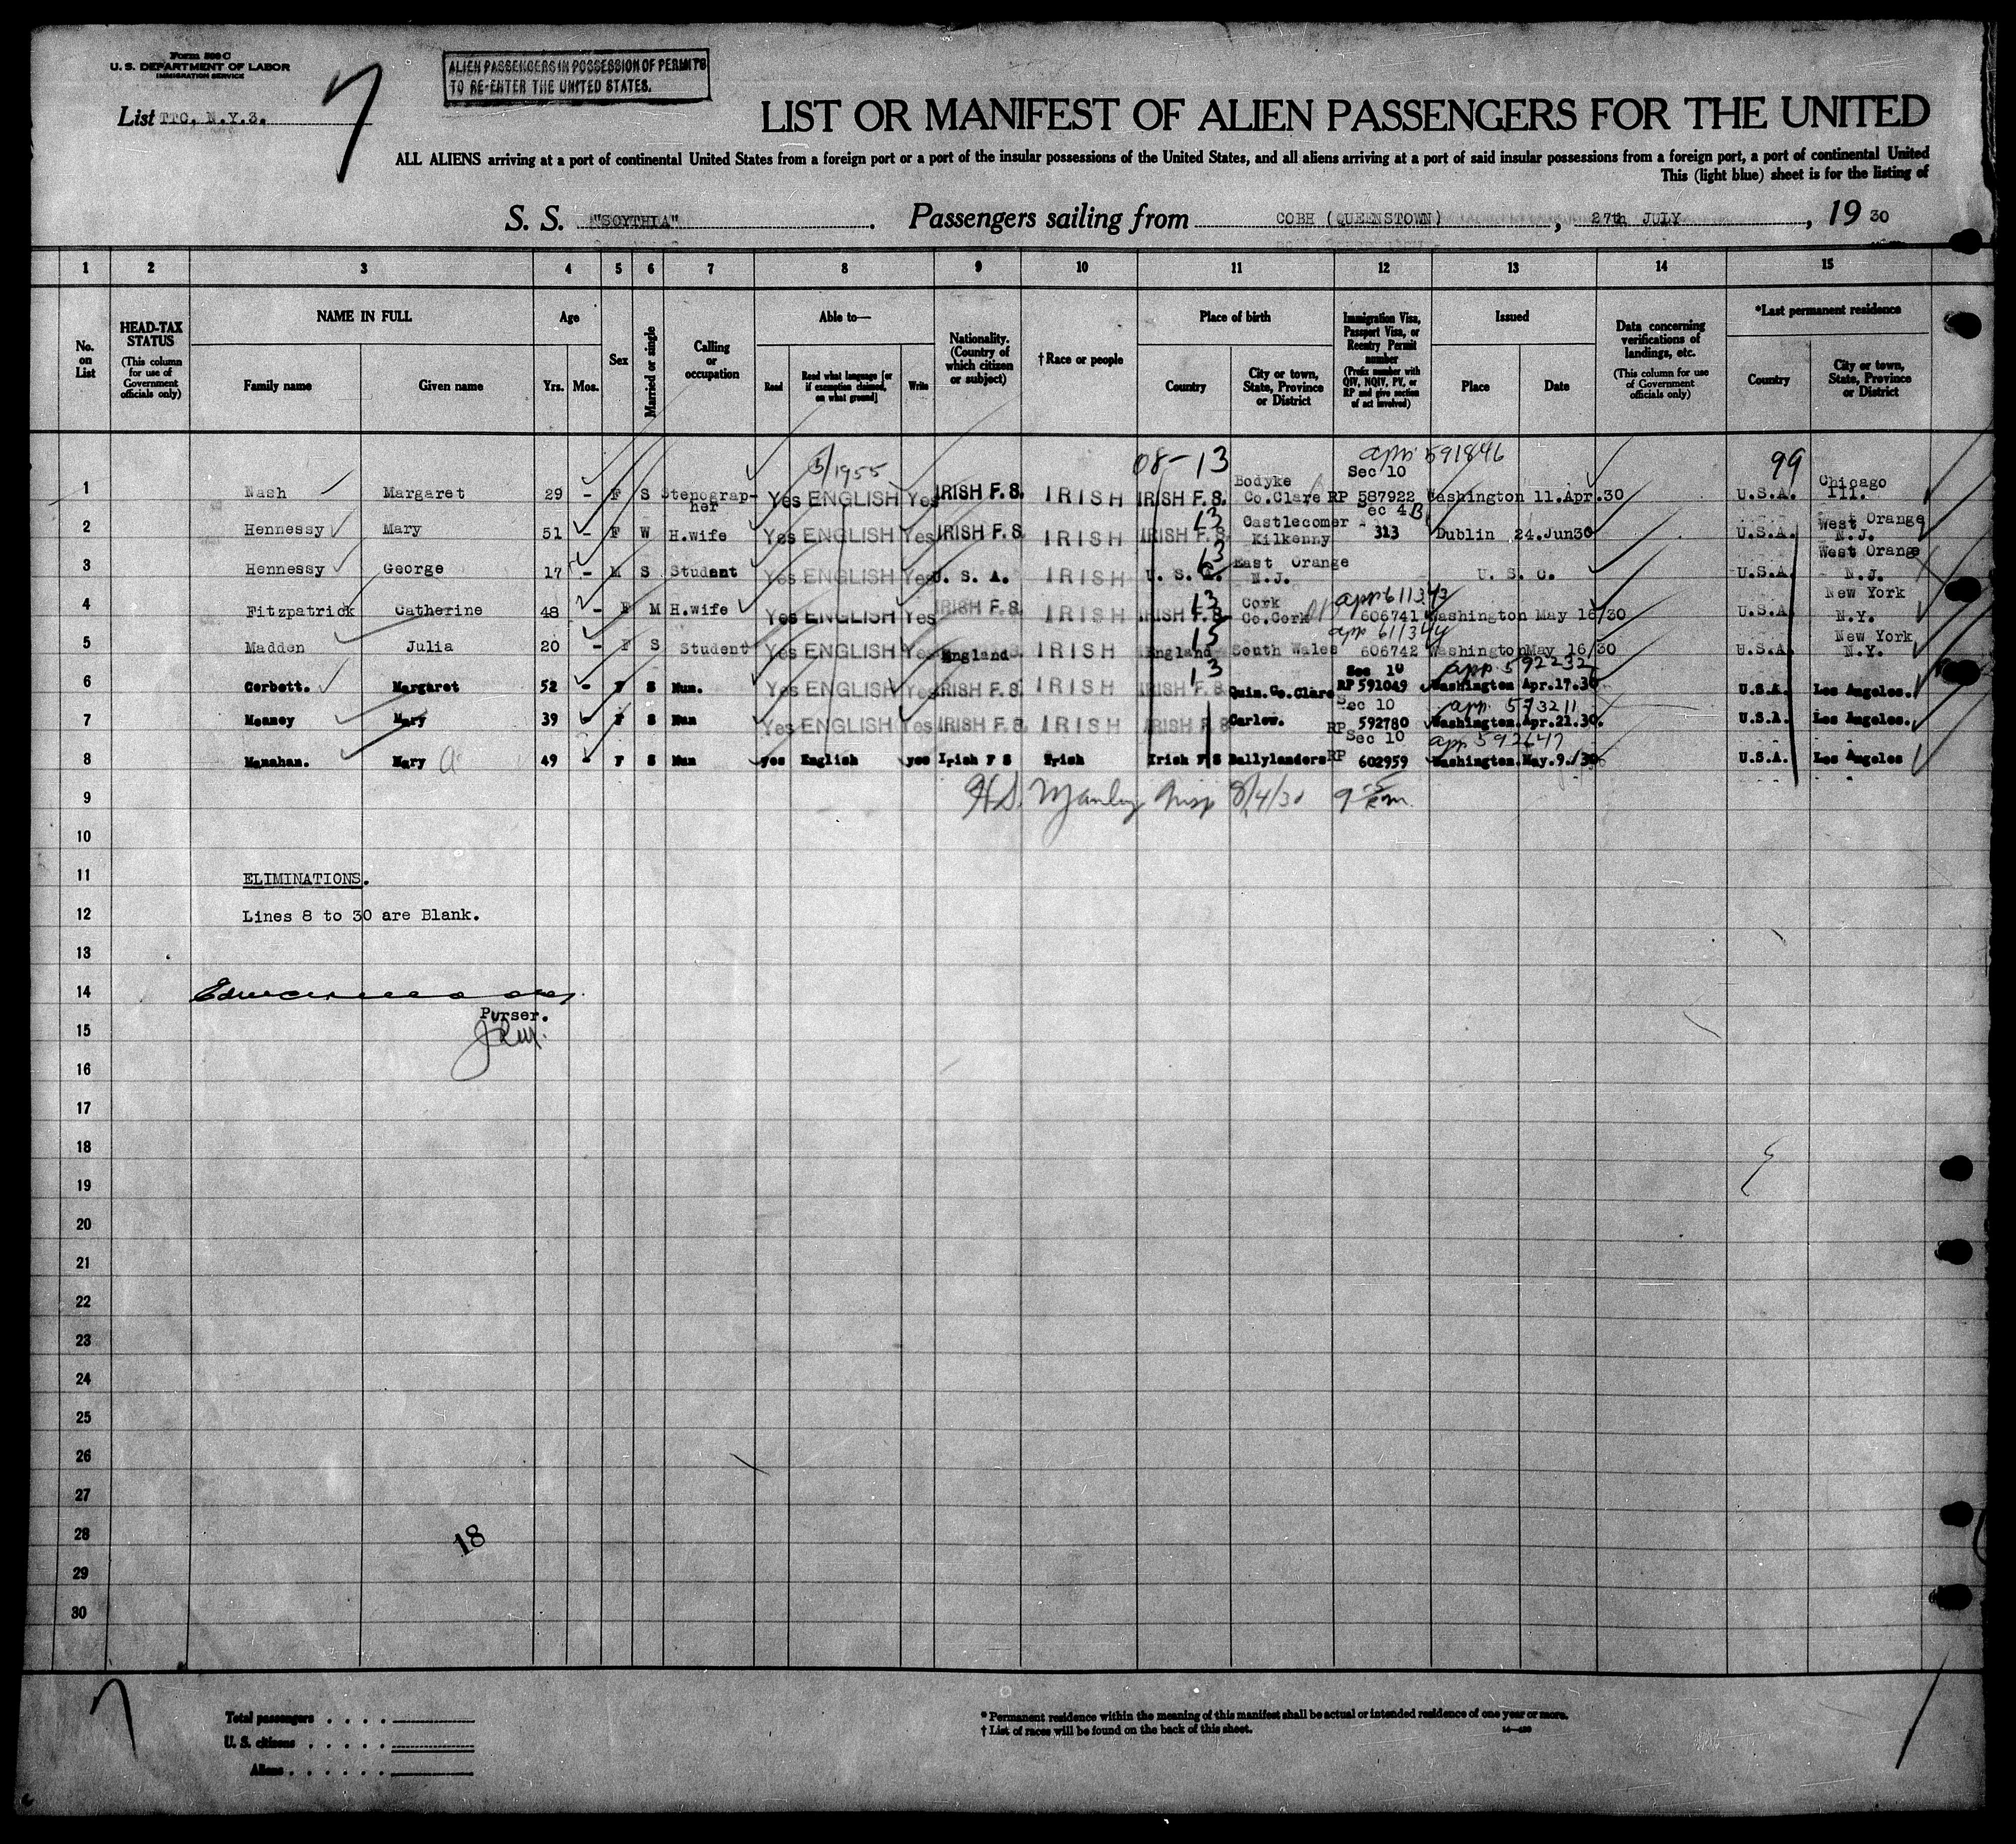 Form 500 C
U. S. DEPARTMENT OF LABOR
IMMIGRATION SERVICE
List TTC, N.Y.3.
7
ALIEN PASSENGERS IN POSSESSION OF PERMITS
TO RE-ENTER THE UNITED STATES.
LIST OR MANIFEST OF ALIEN PASSENGERS FOR THE UNITED
ALL ALIENS arriving at a port of continental United States from a foreign port or a port of the insular possessions of the United States, and all aliens arriving at a port of said insular possessions from a foreign port, a port of continental United
This (light blue) sheet is for the listing of
S. S. "SCYTHIA". Passengers sailing from COBH (QUEENSTOWN), 27th JULY, 19 30
1 2 3 4 5 6 7 8 9 10 11 12 13 14 15
No. on List
HEAD-TAX STATUS (This column for use of Government officials only)
NAME IN FULL
Family name Given name
Age
Yrs. Mos.
Sex
Married or single
Calling or occupation
Able to—
Read Read what language [or if exemption claimed, on what ground] Write
Nationality. (Country of which citizen or subject)
†Race or people
Place of birth
Country City or town, State, Province or District
Immigration Visa, Passport Visa, or Reentry Permit number (Prefix number with QIV, NQIV, PV, or RP and give section of act involved)
Issued
Place Date
Data concerning verifications of landings, etc. (This column for use of Government officials only)
*Last permanent residence
Country City or town, State, Province or District
5/1955 08-13 Sec 10 591846 99
1 Nash Margaret 29 - F S Stenographer Yes ENGLISH Yes IRISH F.S. IRISH IRISH F.S. Bodyke Co.Clare RP 587922 Washington 11.Apr.30 U.S.A. Chicago Ill.
2 Hennessy Mary 51 - F W H.wife Yes ENGLISH Yes IRISH F.S. IRISH IRISH F.S. 13 Castlecomer Kilkenny Sec 4B 313 Dublin 24.Jun30 U.S.A. West Orange N.J.
3 Hennessy George 17 - M S Student Yes ENGLISH Yes U. S. A. IRISH U. S. A. East Orange N.J. U. S. C. U.S.A. West Orange N.J.
4 Fitzpatrick Catherine 48 - F M H.wife Yes ENGLISH Yes IRISH F.S. IRISH IRISH F.S. 13 Cork Co.Cork app 611343 606741 Washington May 16/30 U.S.A. New York N.Y.
5 Madden Julia 20 - F S Student Yes ENGLISH Yes England IRISH England 15 South Wales app 611344 606742 Washington May 16/30 U.S.A. New York N.Y.
6 Corbett. Margaret 52 - F S Nun. Yes ENGLISH Yes IRISH F.S. IRISH IRISH F.S. 13 Quin.Co.Clare Sec 10 RP 591049 app 592232 Washington Apr.17.30 U.S.A. Los Angeles.
7 Meaney Mary 39 - F S Nun Yes ENGLISH Yes IRISH F.S. IRISH IRISH F.S. Carlow. Sec 10 RP 592780 app 573211 Washington.Apr.21.30. U.S.A. Los Angeles.
8 Manahan. Mary 49 - F S Nun yes English yes Irish F S Irish Irish F S Ballylanders Sec 10 RP 602959 app 592647 Washington.May.9./30 U.S.A. Los Angeles
9 H.S. Manley Insp 8/4/30
10
11 ELIMINATIONS.
12 Lines 8 to 30 are Blank.
13
14
Purser.
15
16
17
18
19
20
21
22
23
24
25
26
27
28
18
29
30
7
Total passengers
U. S. citizens
Aliens
* Permanent residence within the meaning of this manifest shall be actual or intended residence of one year or more.
† List of races will be found on the back of this sheet.